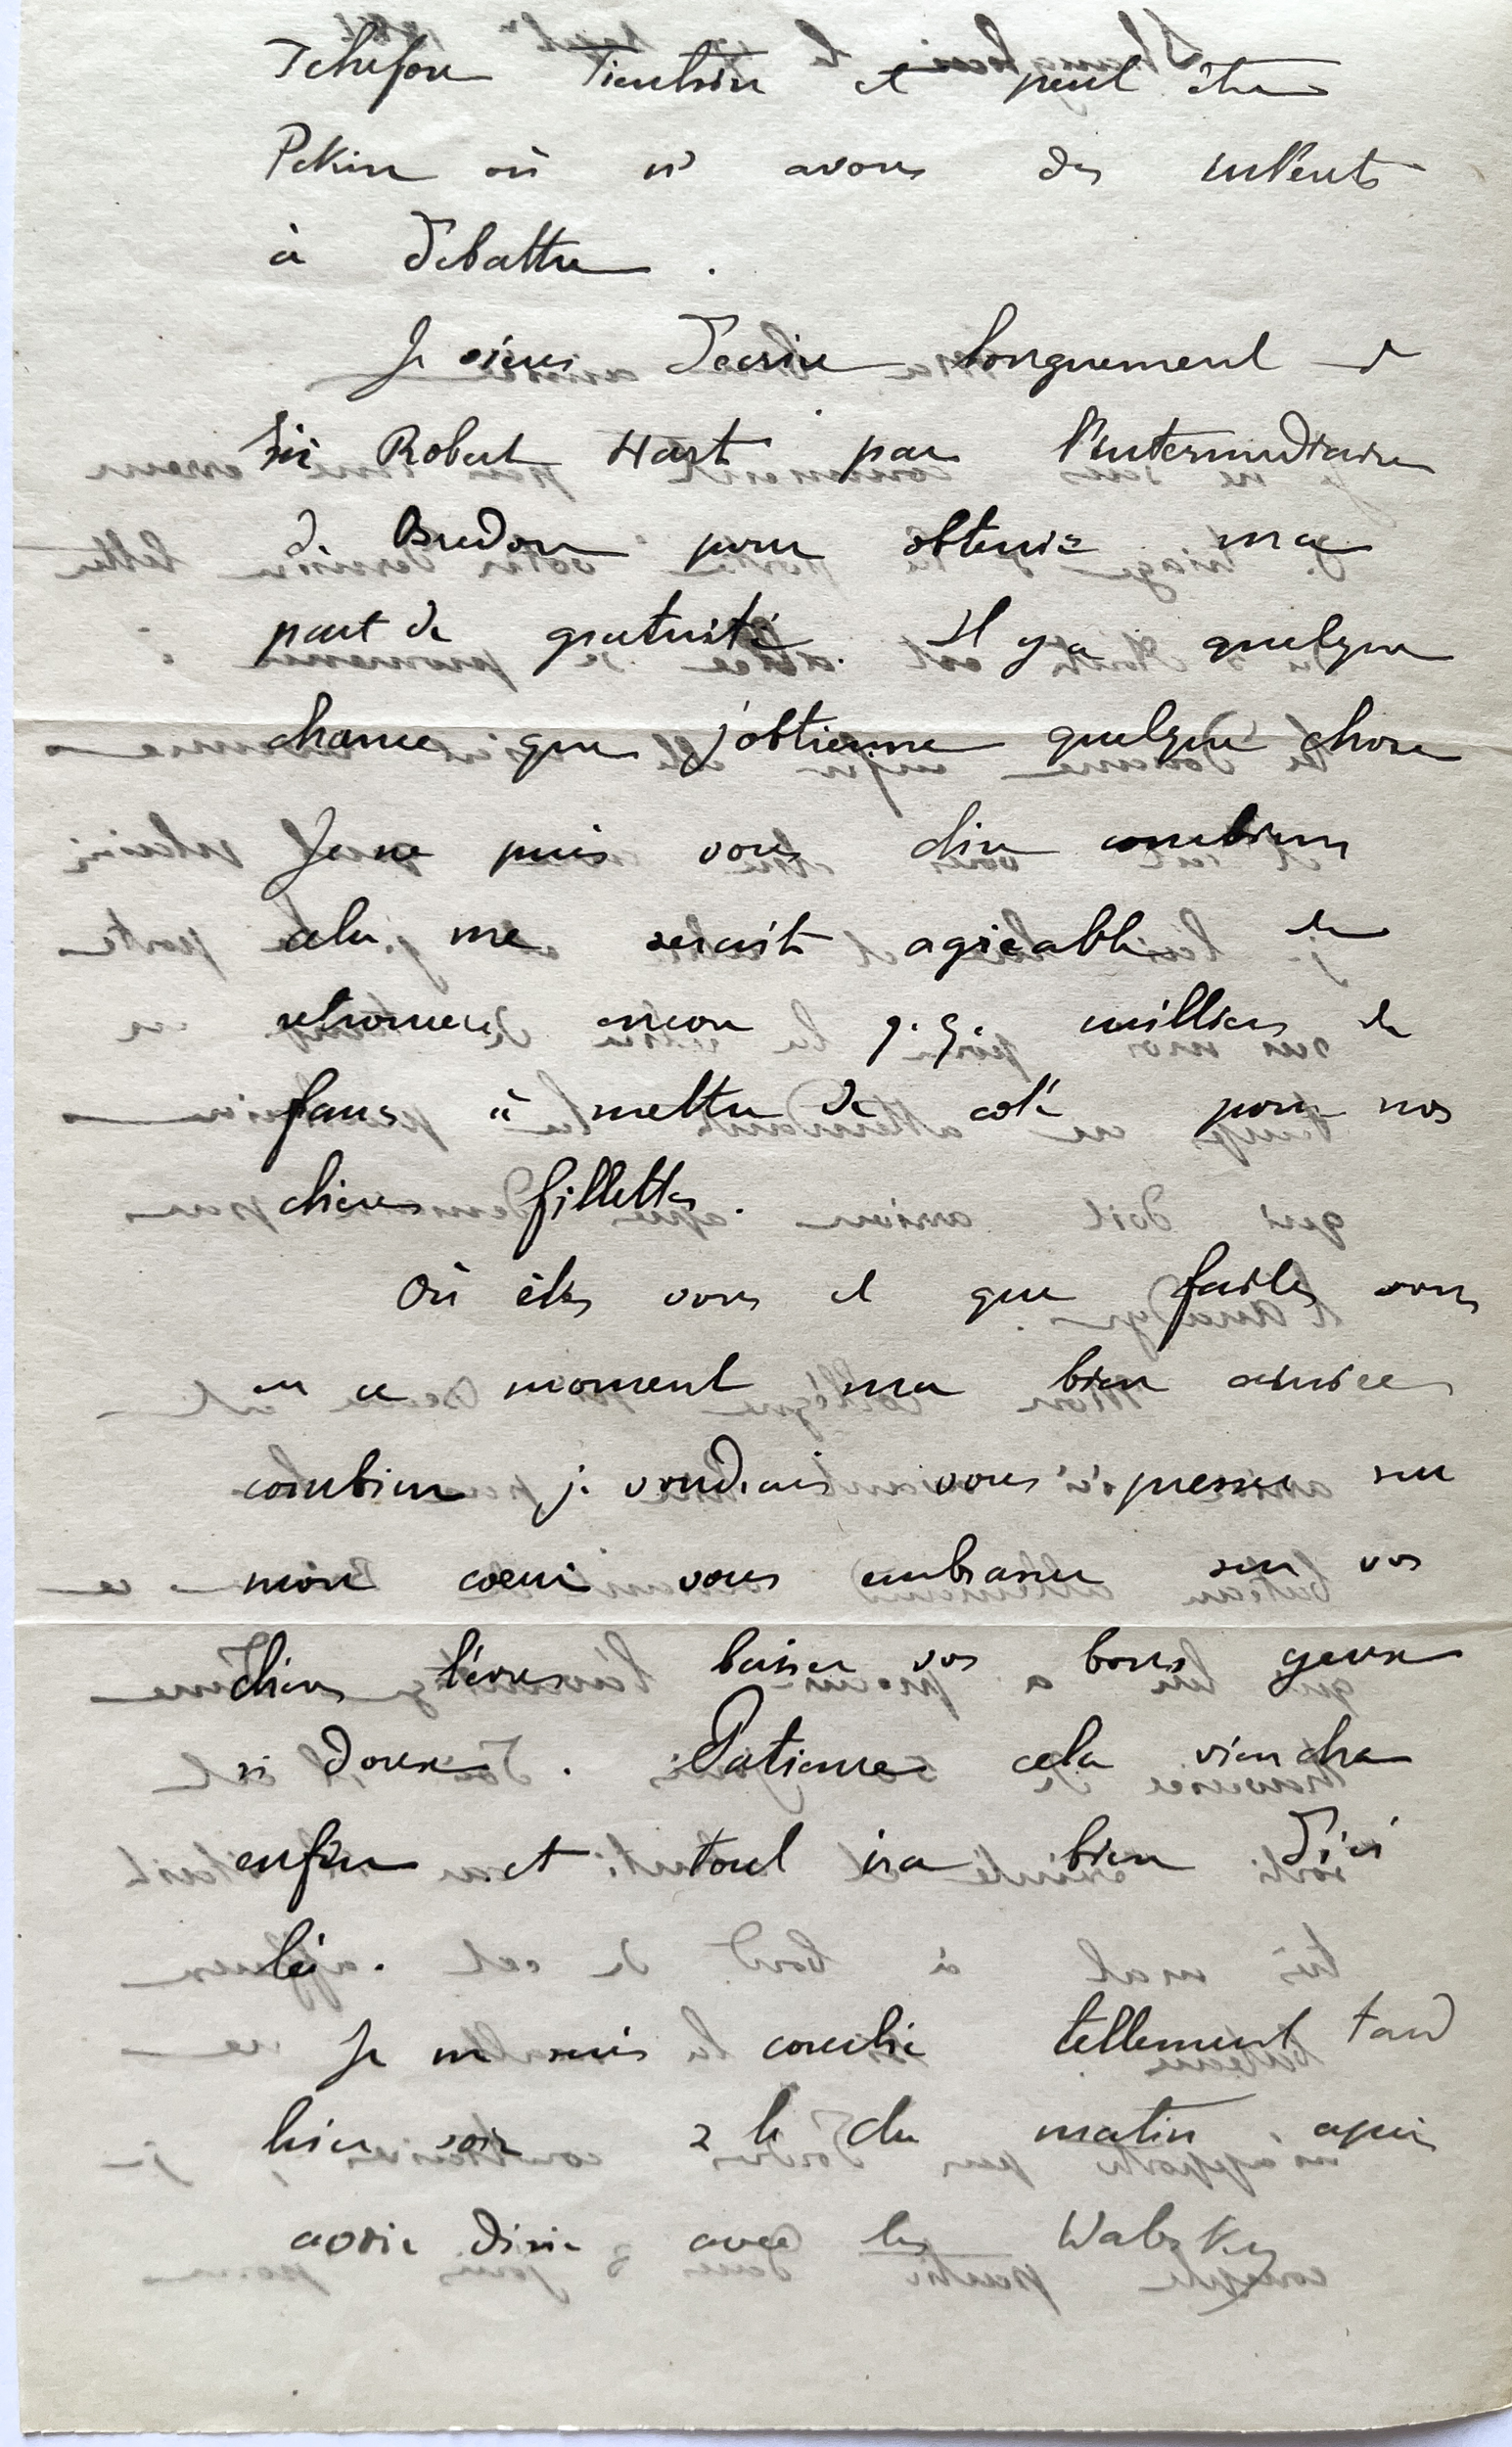 Tchefou Tientsin et peut être
Pékin où n/s avons des intérêts
à débattre.
Je viens d'écrire longuement à
Sir Robert Hart par l'intermédiaire
de Bredon pour obtenir ma
part de gratuité. Il y a quelque
chance que j'obtienne quelque chose
Je ne puis vous dire combien
cela me serait agréable de
retrouver encore q.q. milliers de
francs à mettre de coté pour nos
chères fillettes.
Où êtes vous et que faites vous
en ce moment ma bien aimée
combien je voudrais vous presser sur
mon coeur vous embrasser sur vos
chères lèvres baiser vos bons yeux
si doux. Patience cela viendra
enfin et tout ira bien d'ici
là.
Je me suis couché tellement tard
hier soir 2 h du matin après
avoir diné avec les